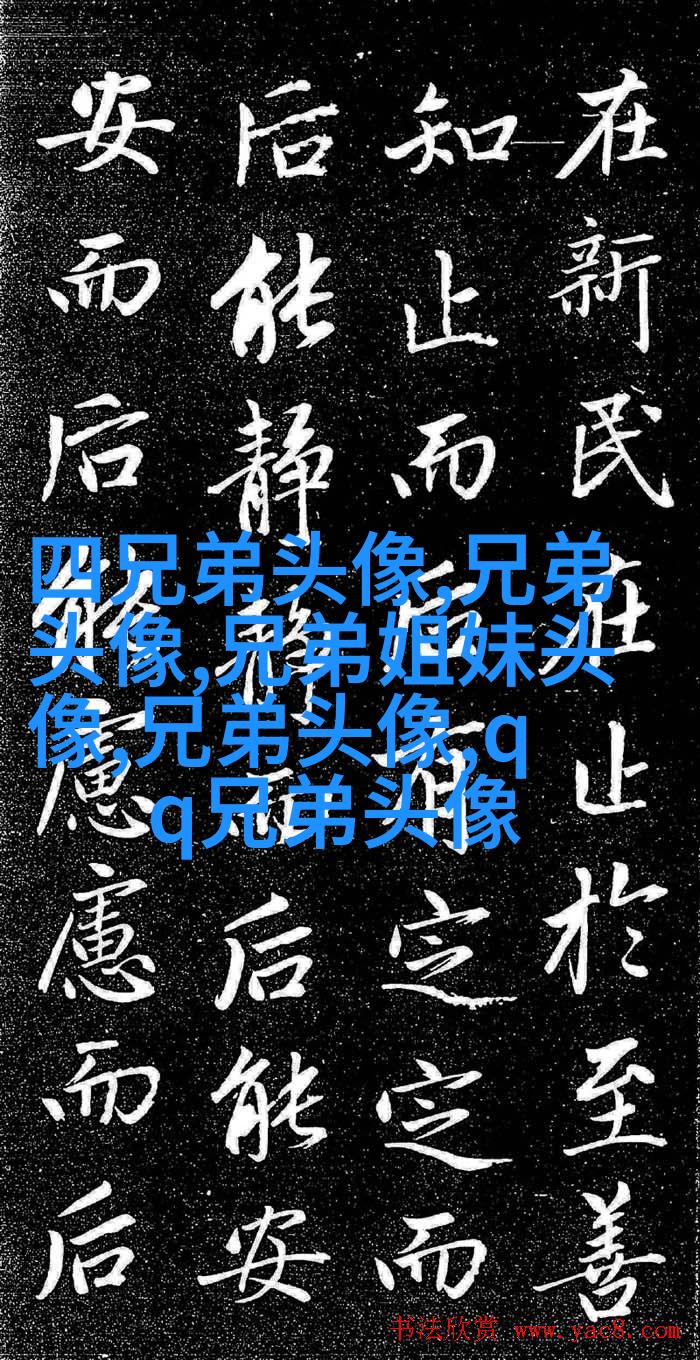 在新民在止於至善
知止而后有定定而
后能静静而后能安
安而后能慮慮而后
四兄弟头像,兄弟
头像,兄弟姐妹头
像,兄弟头像,q
q兄弟头像
书法欣赏 www.yac8.com